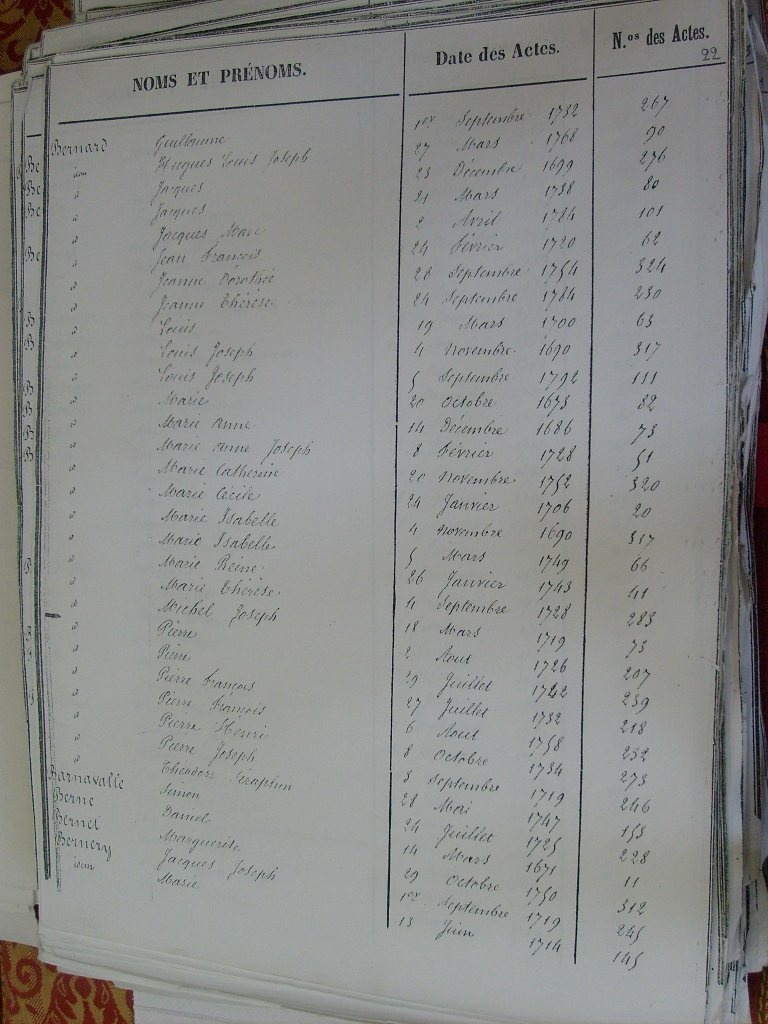 NOMS ET PRÉNOMS. Date des Actes. N.os des Actes.
22
Bernard Guillaume 1er Septembre 1732 267
idem Hugues Louis Joseph 27 Mars 1768 90
" Jacques 23 Décembre 1699 276
" Jacques 21 Mars 1738 80
" Jacques Marc 2 Avril 1784 101
" Jean François 24 Février 1720 62
" Jeanne Dorothée 28 Septembre 1754 324
" Jeanne Thérèse 24 Septembre 1784 230
" Louis 19 Mars 1700 63
" Louis Joseph 4 Novembre 1690 317
" Louis Joseph 5 Septembre 1792 111
" Marie 20 Octobre 1673 82
" Marie Anne 14 Décembre 1686 73
" Marie Anne Joseph 8 Février 1728 51
" Marie Catherine 20 Novembre 1752 320
" Marie Cécile 24 Janvier 1706 20
" Marie Isabelle 4 Novembre 1690 317
" Marie Isabelle 5 Mars 1749 66
" Marie Reine 26 Janvier 1743 41
" Marie Thérèse 4 Septembre 1728 283
" Michel Joseph 18 Mars 1719 73
" Pierre 2 Aout 1726 207
" Pierre 19 Juillet 1742 239
" Pierre François 27 Juillet 1732 218
" Pierre François 6 Aout 1758 232
" Pierre Henri 8 Octobre 1734 273
" Pierre Joseph 8 Septembre 1719 246
" Théodore Séraphin 28 Mai 1747 155
Barnavalle Simon 24 Juillet 1725 228
Berne Daniel 14 Mars 1671 11
Bernet Marguerite 29 Octobre 1750 312
Bernery Jacques Joseph 1er Septembre 1719 245
idem Marie 13 Juin 1714 145